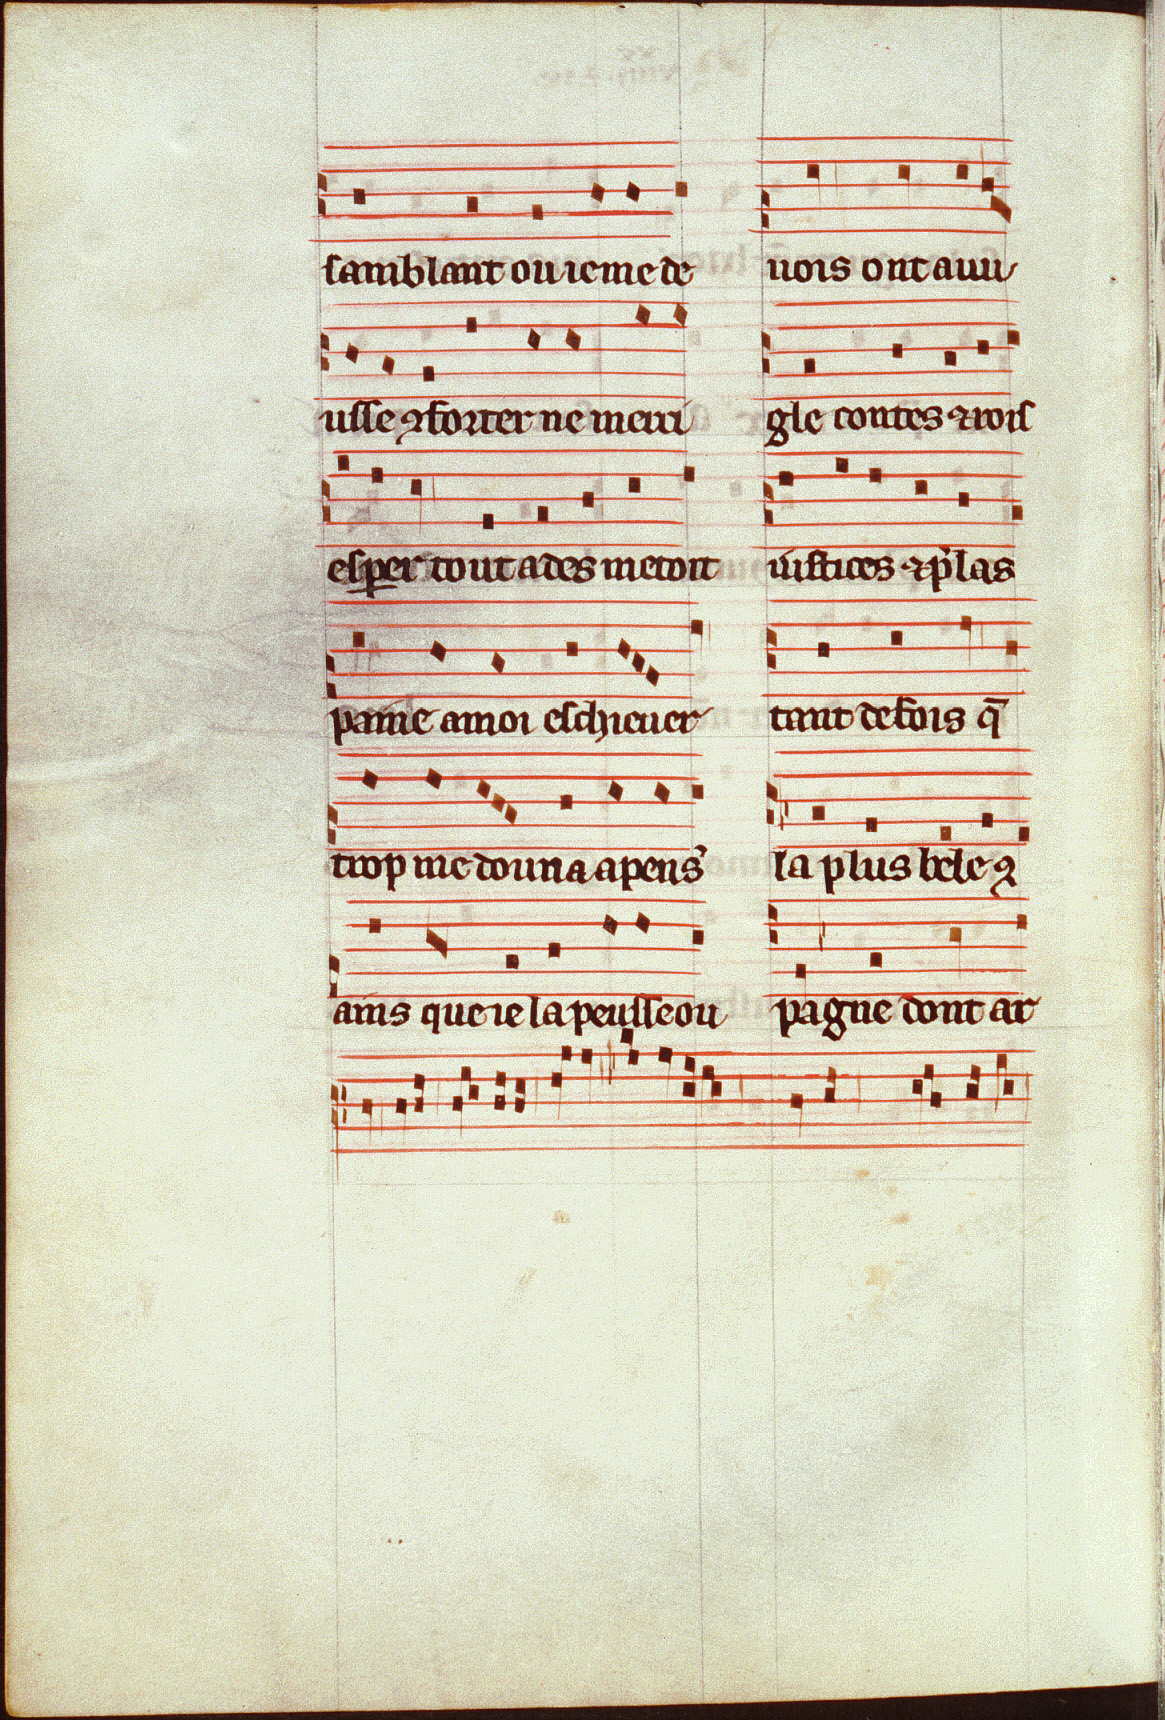 samblant ou ie me de
usse ꝯforter ne merci
esꝑer tout ades metoit
paine a moi eschieuer
trop me douna a pens̉
ains que ie la peusse ou
uois ont auu
gle contes ⁊ rois
iustices ⁊ p̾las
tant de fois q̄
la plus bele ꝯ
pagne dont ar